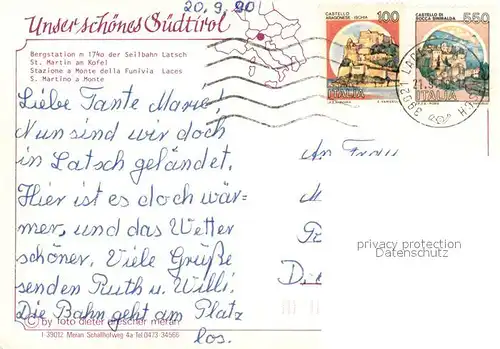 20.9.90
Unser schönes Südtirol
Bergstation m 1740 der Seilbahn Latsch
St. Martin am Kofel
Stazione a Monte della Funivia Laces
S. Martino a Monte
CASTELLO ARAGONESE - ISCHIA 100
ITALIA
CASTELLO DI ROCCA SINIBALDA 550
ITALIA
39021
Liebe Tante Marie!
Nun sind wir doch
in Latsch gelandet.
Hier ist es doch wär=
mer, und das Wetter
schöner. Viele Grüße
senden Ruth u. Willi.
Die Bahn geht am Platz
los.
An Frau
privacy protection
Datenschutz
(C) by foto dieter drescher meran
I 39012 Meran Schallhofweg 4a Tel. 0473 34566